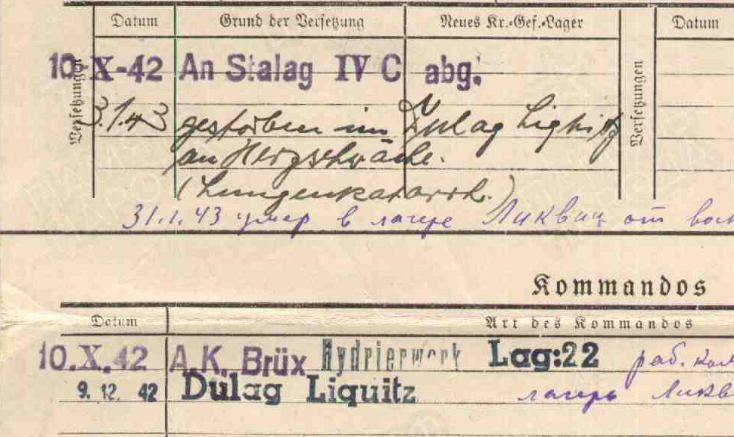 Datum Grund der Versetzung Neues Kr.-Gef.-Lager Datum
Versetzungen
Versetzungen
10-X-42 An Stalag IV C abg.
3.1.43 gestorben im Dulag Liquitz
an Herzschwäche.
(Lungenkatarrh.)
31.1.43 умер в лагере Ликвиц от вос
Kommandos
Datum Art des Kommandos
10.X.42 A.K. Brüx Hydrierwerk Lag:22 раб. ком
9. 12. 42 Dulag Liquitz лагерь Ликв